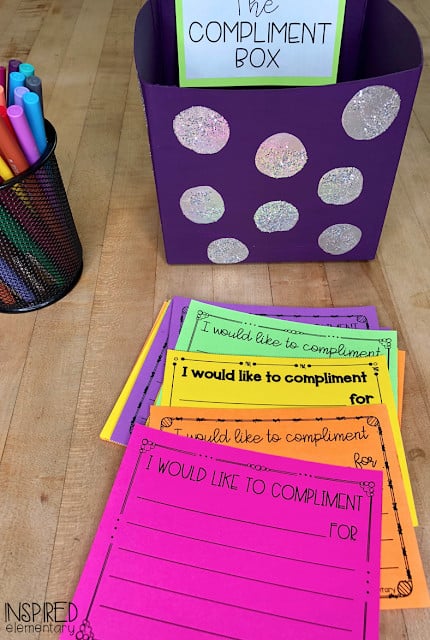 The
COMPLIMENT
BOX
I would like to compliment
I would like to compliment
for
I would like to compliment
for
I WOULD LIKE TO COMPLIMENT
FOR
INSPIRED
elementary